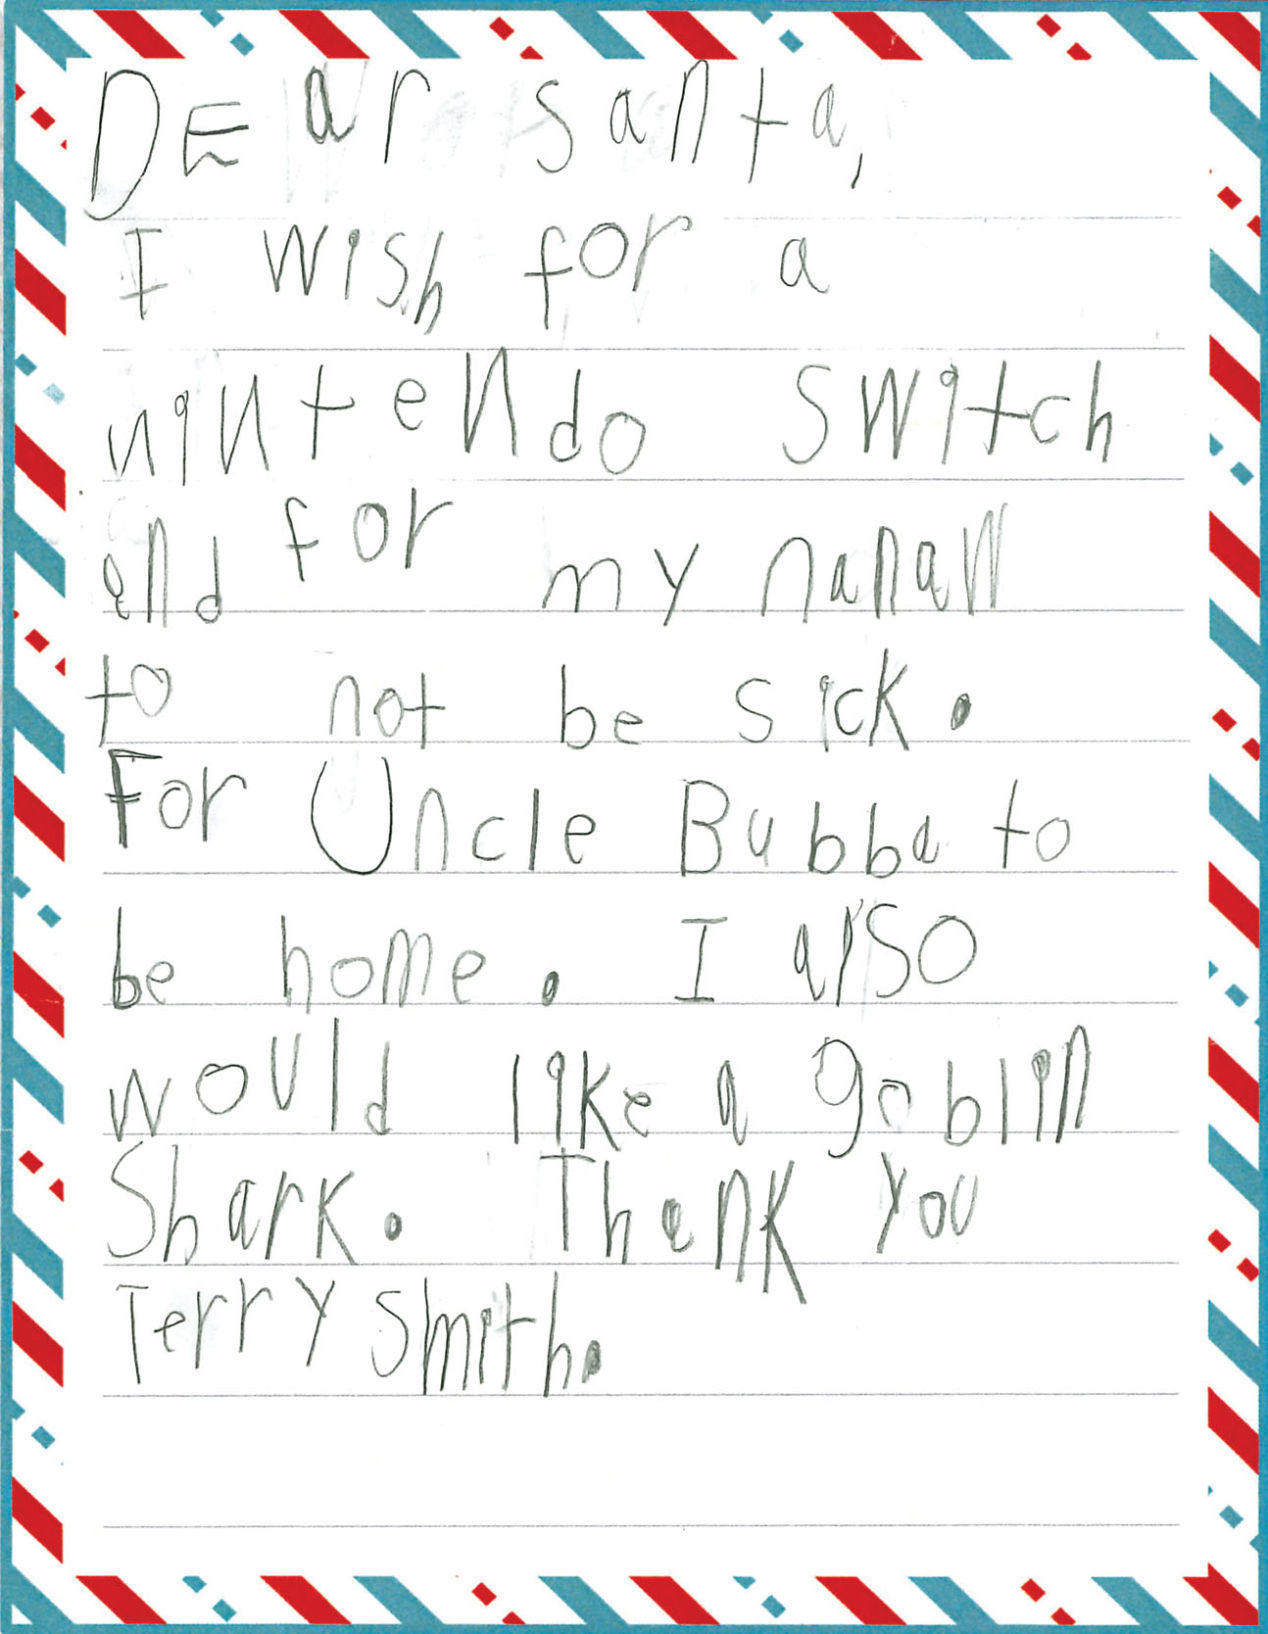 DEar santa,
I wish for a
nintendo switch
and for my nanaw
to not be sick.
For Uncle Bubba to
be home. I also
would like a goblin
Shark. Thank you
Terry Smith.